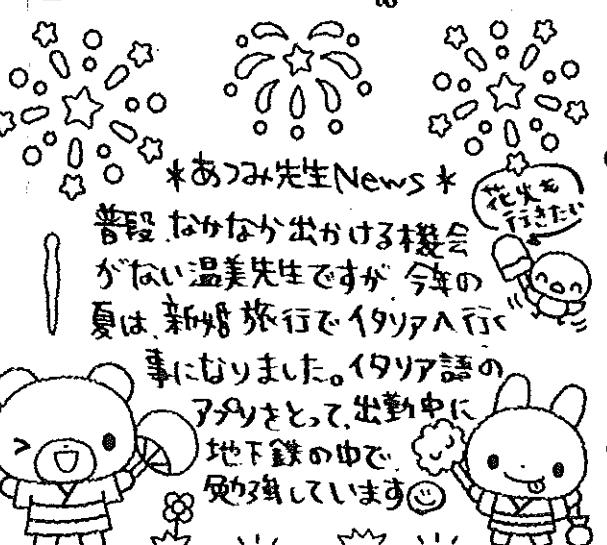 ＊あつみ先生News＊
花火も
行きたい
普段、なかなか出かける機会
がない温美先生ですが、今年の
夏は、新婚旅行でイタリアへ行く
事になりました。イタリア語の
アプリをとって、出勤中に
地下鉄の中で、
勉強しています